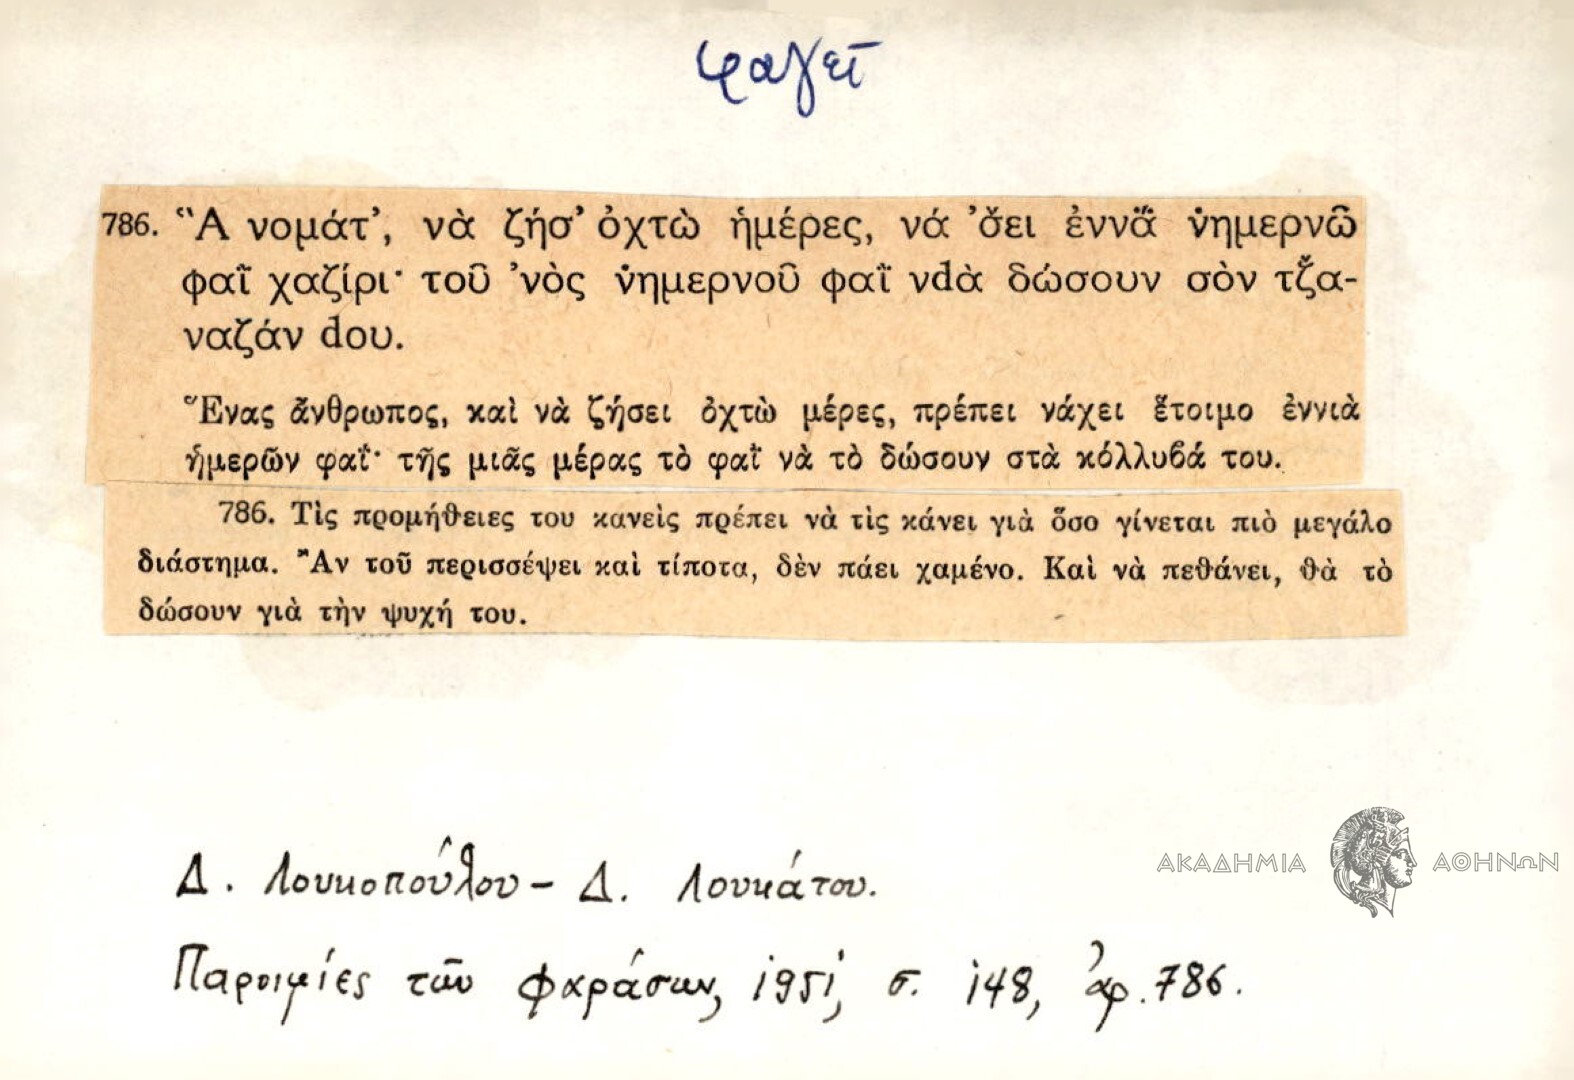 φαγεῖ
786. Ἂ νομάτ’, νὰ ζήσ’ ὀχτὼ ἡμέρες, νά ’ὄει ἐννἄ νημερνῶ
φαῒ χαζίρι· τοῦ ’νὸς νημερνοῦ φαῒ νdὰ δώσουν σὸν τζ̌α-
ναζάν dου.
Ἕνας ἄνθρωπος, καὶ νὰ ζήσει ὀχτὼ μέρες, πρέπει νάχει ἕτοιμο ἐννιὰ
ἡμερῶν φαΐ· τῆς μιᾶς μέρας τὸ φαῒ νὰ τὸ δώσουν στὰ κόλλυβά του.
786. Τὶς προμήθειες του κανεὶς πρέπει νὰ τὶς κάνει γιὰ ὅσο γίνεται πιὸ μεγάλο
διάστημα. Ἂν τοῦ περισσέψει καὶ τίποτα, δὲν πάει χαμένο. Καὶ νὰ πεθάνει, θὰ τὸ
δώσουν γιὰ τὴν ψυχή του.
Δ. Λουκοπούλου – Δ. Λουκάτου.
Παροιμίες τῶν Φαράσων, 1951, σ. 148, ἀρ. 786.
ΑΚΑΔΗΜΙΑ ΑΘΗΝΩΝ